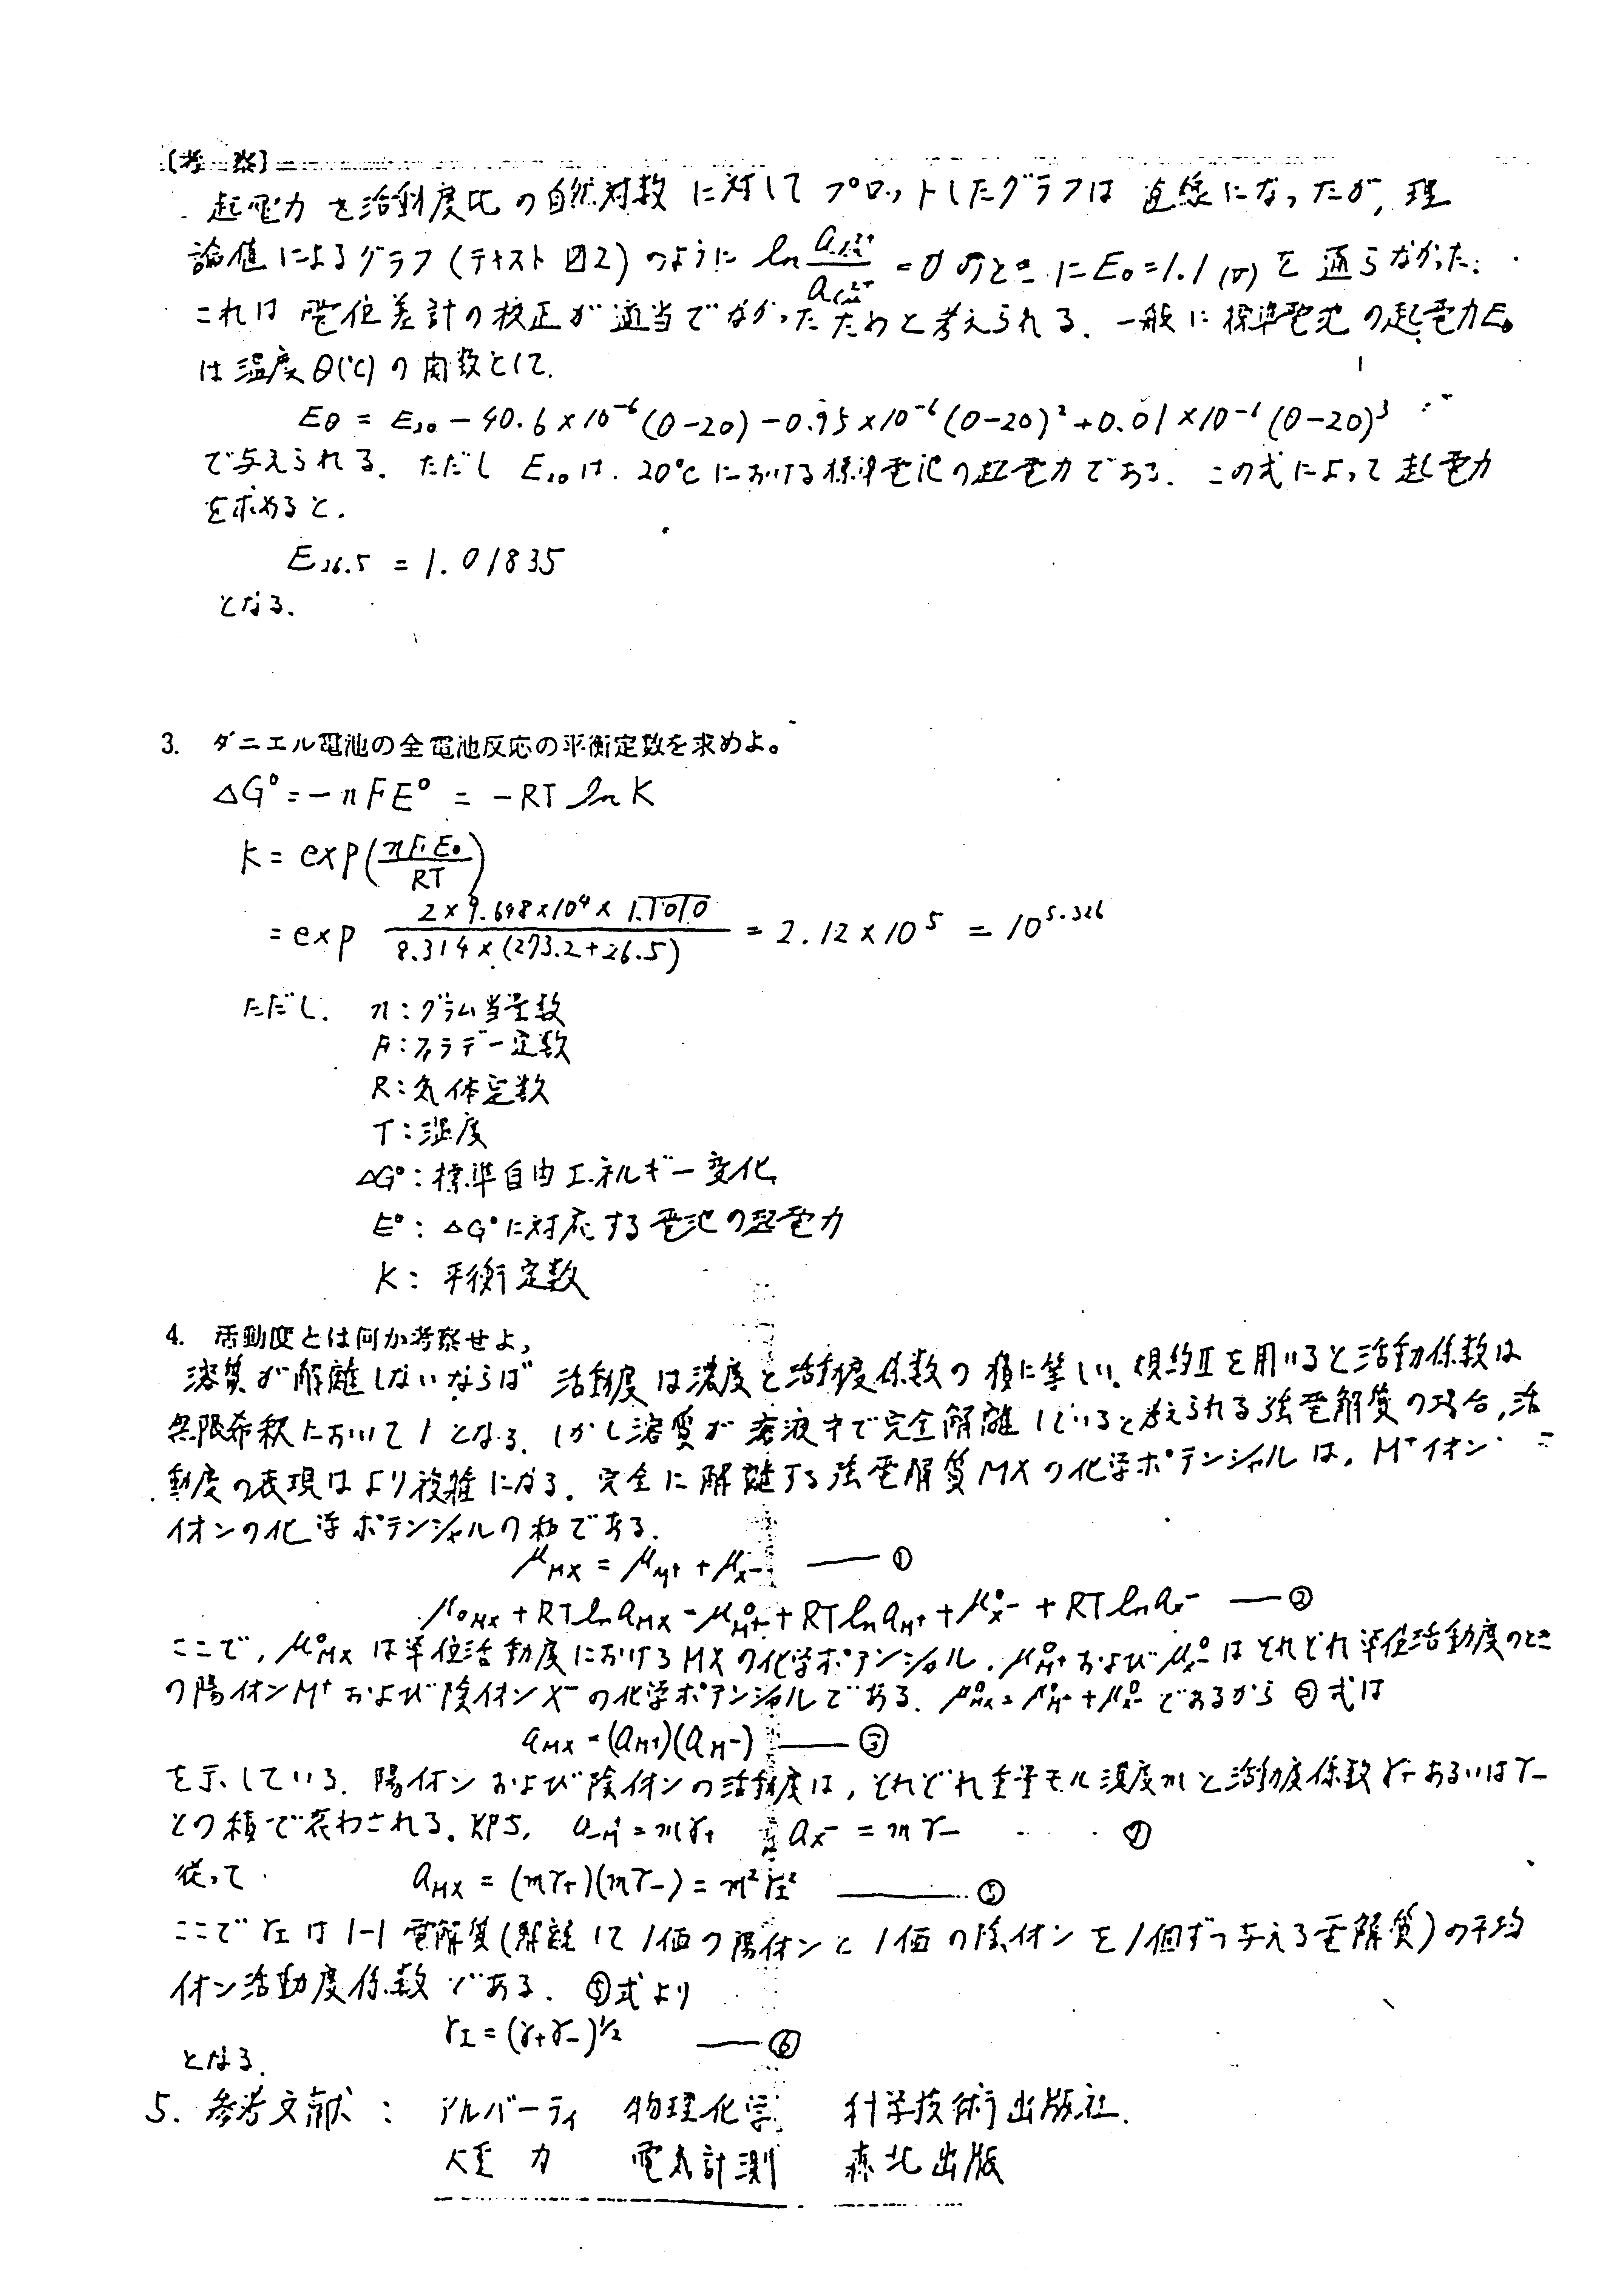 〔考 察〕
起電力を活動度比の自然対数に対してプロットしたグラフは直線になったが, 理
論値によるグラフ(テキスト図2)のように ln a / a Cu²⁺ = 0 のときに E₀=1.1 (V) を通らなかった.
これは電位差計の校正が適当でなかったためと考えられる. 一般に標準電池の起電力Eθ
は温度θ(℃)の関数として.
Eθ = E₂₀ − 40.6×10⁻⁶(θ−20) − 0.95×10⁻⁶(θ−20)² + 0.01×10⁻⁶(θ−20)³
で与えられる. ただし E₂₀は. 20℃における標準電池の起電力である. この式によって起電力
を求めると.
E₂₆.₅ = 1.01835
となる.
3. ダニエル電池の全電池反応の平衡定数を求めよ。
ΔG° = −nFE° = −RT ln K
K = exp(nFE₀/RT)
= exp 2×9.648×10⁴×1.1010 / 8.314×(273.2+26.5) = 2.12×10⁵ = 10⁵·³²⁶
ただし. n:グラム当量数
F:ファラデー定数
R:気体定数
T:温度
ΔG°:標準自由エネルギー変化
E°: ΔG°に対応する電池の起電力
K: 平衡定数
4. 活動度とは何か考察せよ,
溶質が解離しないならば 活動度は濃度と活動度係数の積に等しい. 規約Ⅱを用いると活動係数は
無限希釈において1となる. しかし溶質が溶液中で完全解離していると考えられる強電解質の場合, 活
動度の表現はより複雑になる. 完全に解離する強電解質MXの化学ポテンシャルは, M⁺イオン
イオンの化学ポテンシャルの和である.
μMX = μM⁺ + μX⁻ ―― ①
μ°MX + RT ln aMX = μ°M⁺ + RT ln aM⁺ + μ°X⁻ + RT ln aX⁻ ―― ②
ここで, μ°MX は単位活動度におけるMXの化学ポテンシャル. μ°M⁺ および μ°X⁻ はそれぞれ単位活動度のとき
の陽イオンM⁺および陰イオンX⁻の化学ポテンシャルである. μ°MX = μ°M⁺ + μ°X⁻ であるから ②式は
aMX = (aM⁺)(aM⁻) ―― ③
を示している. 陽イオンおよび陰イオンの活動度は, それぞれ重量モル濃度mと活動度係数γ₊あるいはγ₋
との積で表わされる. 即ち, aM⁺ = mγ₊ aX⁻ = mγ₋ ④
従って aMX = (mγ₊)(mγ₋) = m²γ±² ―― ⑤
ここで γ± は 1-1 電解質(解離して1価の陽イオンと1価の陰イオンを1個ずつ与える電解質)の平均
イオン活動度係数である. ⑤式より
γ± = (γ₊γ₋)^1/2 ―― ⑥
となる.
5. 参考文献 : アルバーティ 物理化学 科学技術出版社.
力 電気計測 森北出版